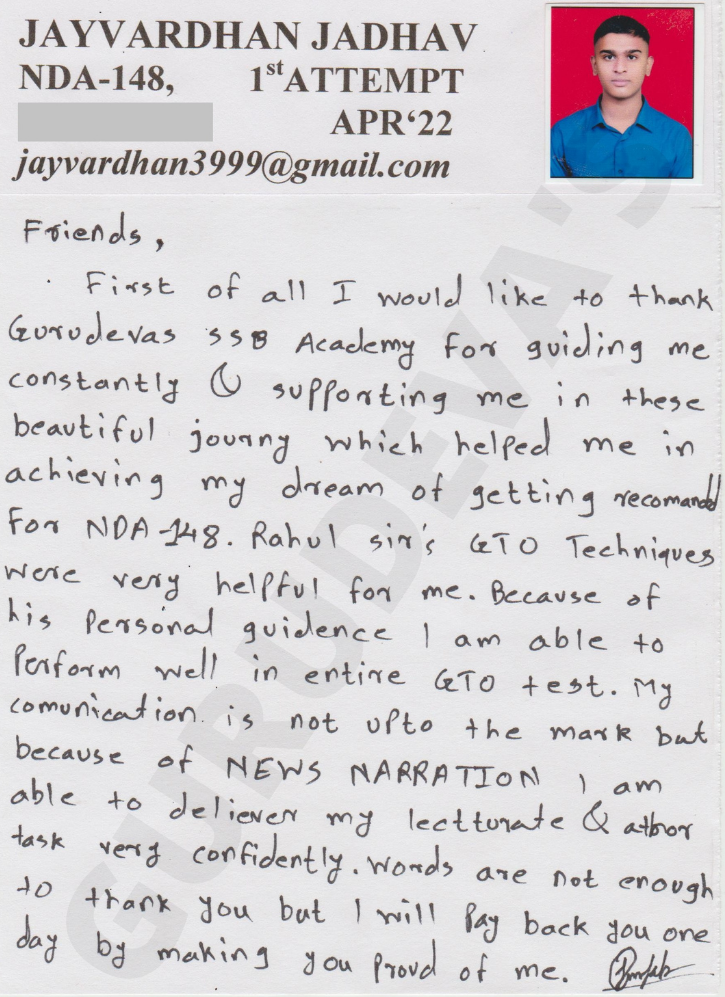 JAYVARDHAN JADHAV
NDA-148, 1st ATTEMPT
APR‘22
jayvardhan3999@gmail.com
Friends,
First of all I would like to thank
Gurudevas SSB Academy for guiding me
constantly & supporting me in these
beautiful journy which helped me in
achieving my dream of getting recomandd
for NDA-148. Rahul sir's GTO Techniques
were very helpful for me. Because of
his Personal guidence I am able to
Perform well in entire GTO test. My
comunication is not upto the mark but
because of NEWS NARRATION I am
able to deliever my lectturate &
task very confidently. Words are not enough
to thank you but I will Pay back you one
day by making you Proud of me.
GURUDEVA'S